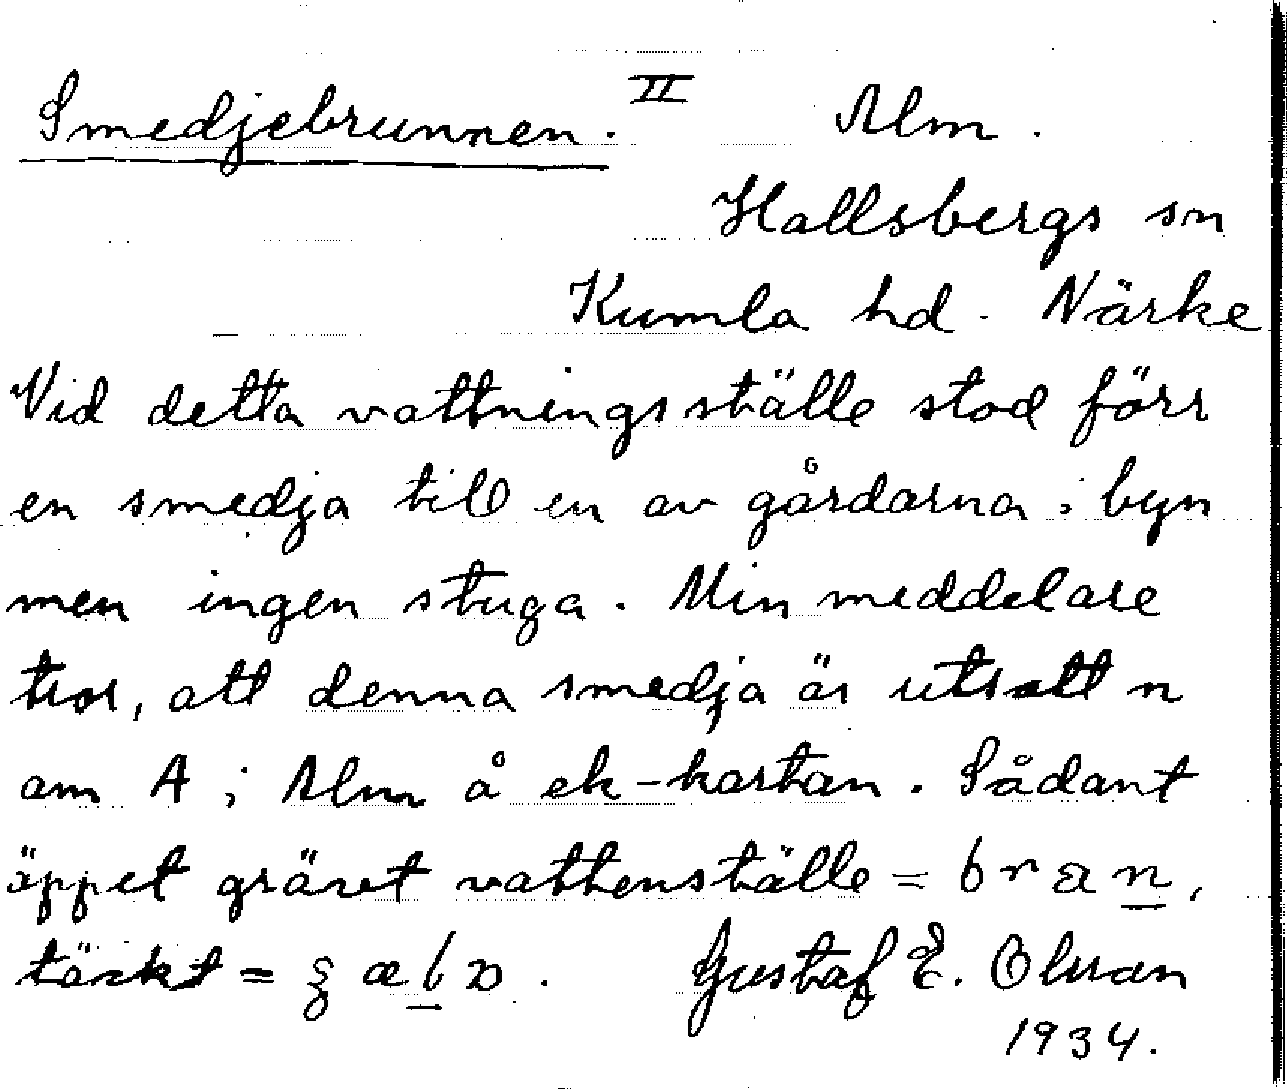 Smedjebrunnen. II Alm.
Hallsbergs sn
Kumla hd. Närke
Vid detta vattningsställe stod förr
en smedja till en av gårdarna i byn
men ingen stuga. Min meddelare
tror, att denna smedja är utsatt n
om A i Alm å ek-kartan. Sådant
öppet grävt vattenställe =
täckt = Gustaf E. Olsson
1934.